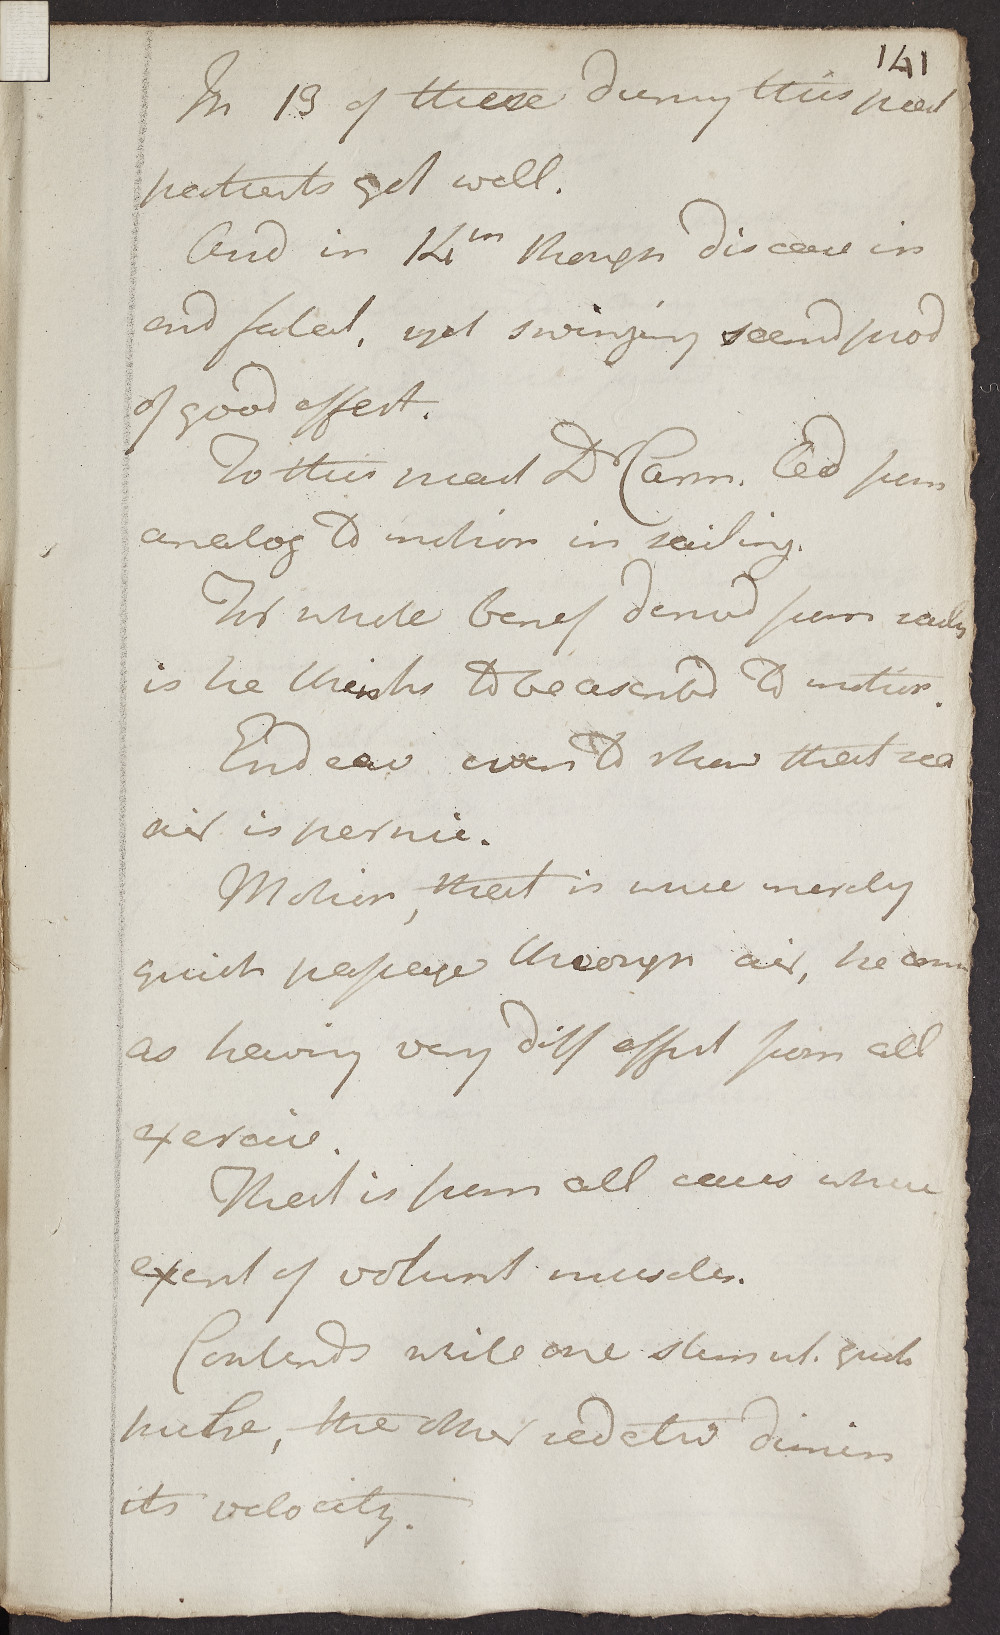 141
In 13 of these during this pract
patients got well.
And in 14th though disease in
end fatal, yet swinging seemd prod
of good effect.
To this pract Dr Carm. led from
analog to motion in sailing.
The whole benef derivd from sailg
is he thinks to be ascribd to motion.
Endeav even to shew that sea
air is pernic.
Motion, that is mere merely
quick passage through air, he con
as having very diff effect from all
exercise.
That is from all cases where
exert of volunt muscles.
Contends while one stimul. quick
pulse, the other sedative dimin
its velocity.